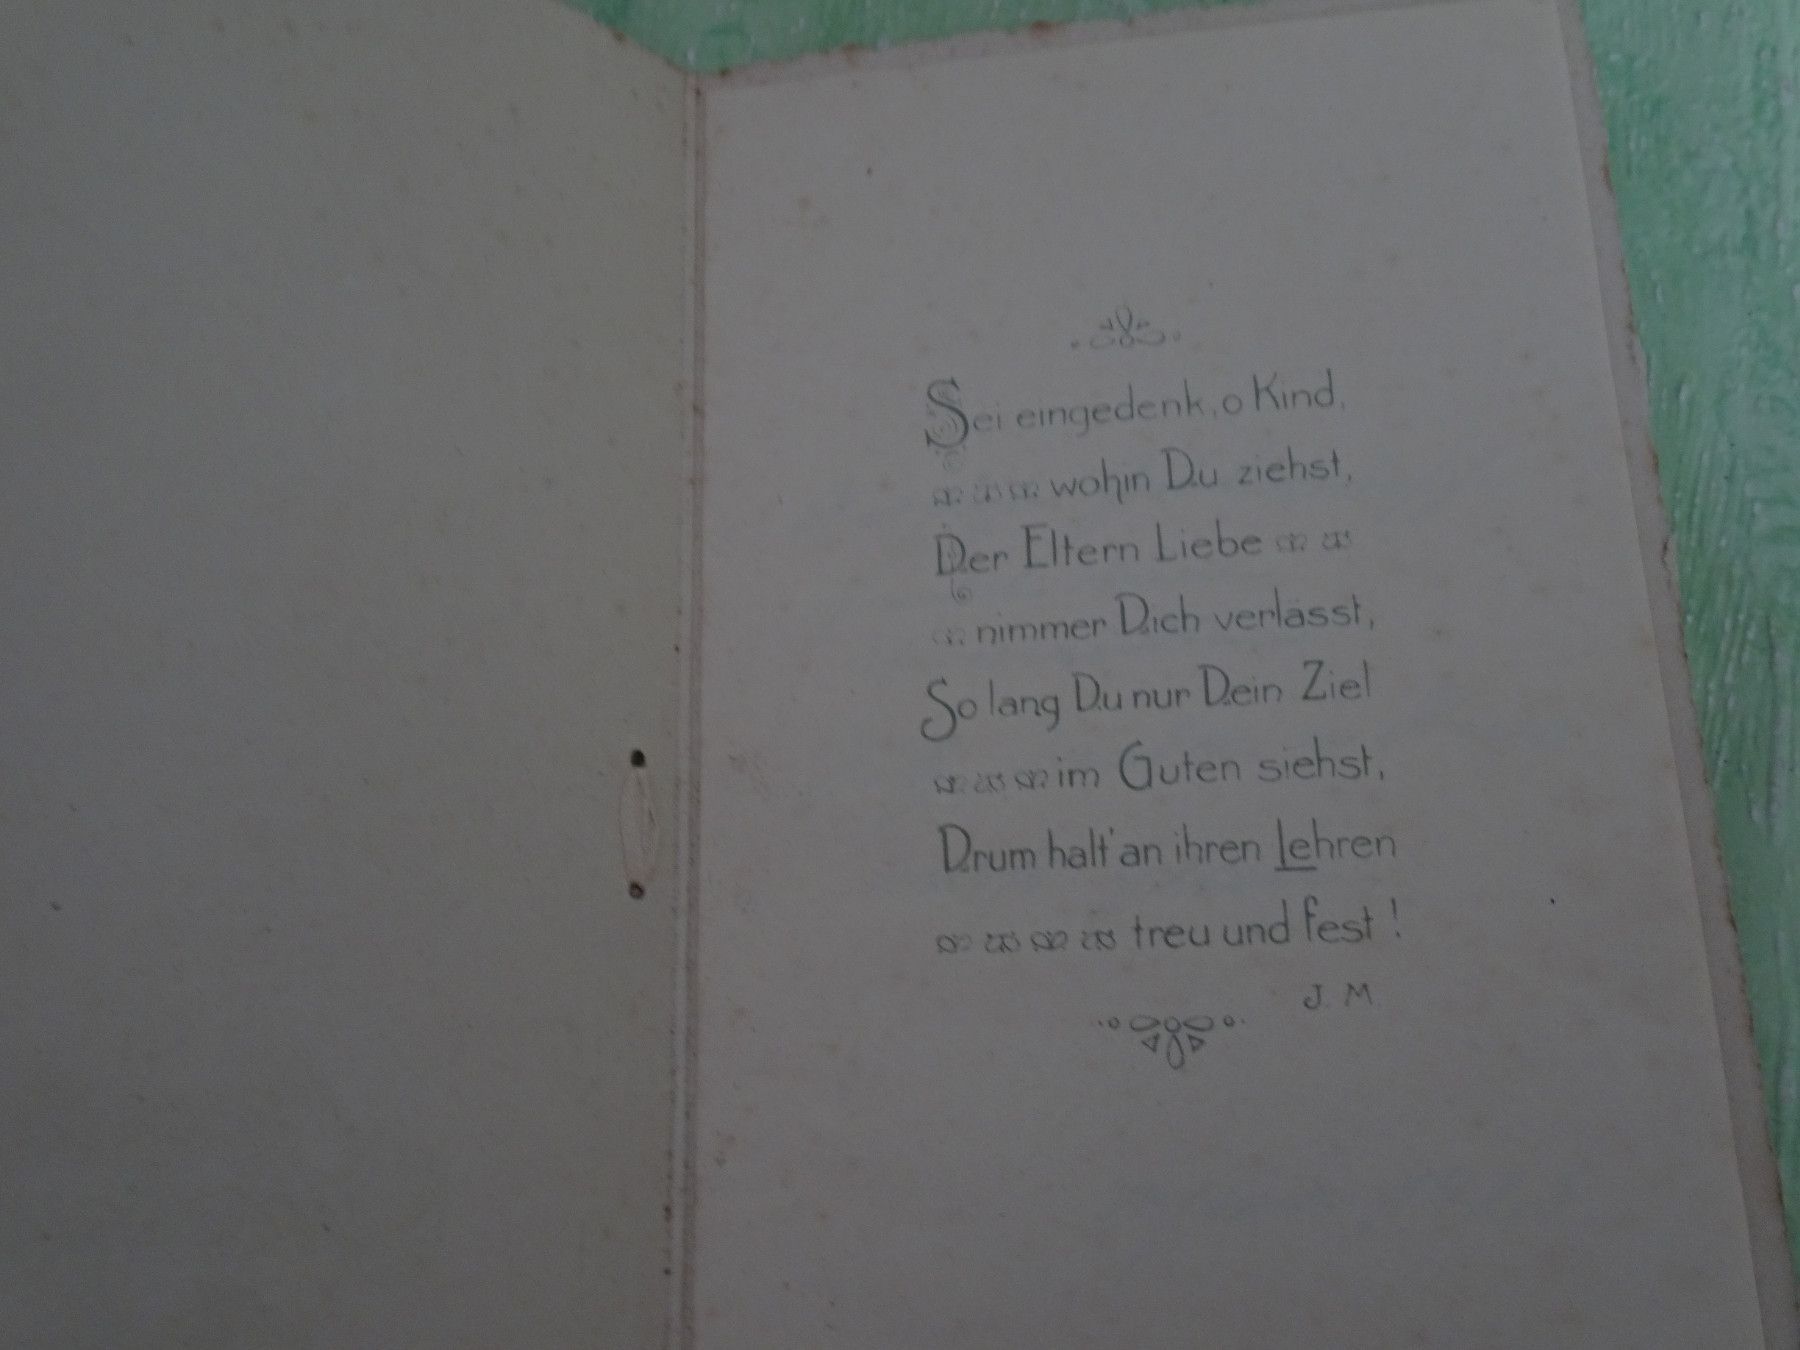 Sei eingedenk, o Kind,
wohin Du ziehst,
Der Eltern Liebe
nimmer Dich verlässt,
So lang Du nur Dein Ziel
im Guten siehst,
Drum halt' an ihren Lehren
treu und fest!
J. M.